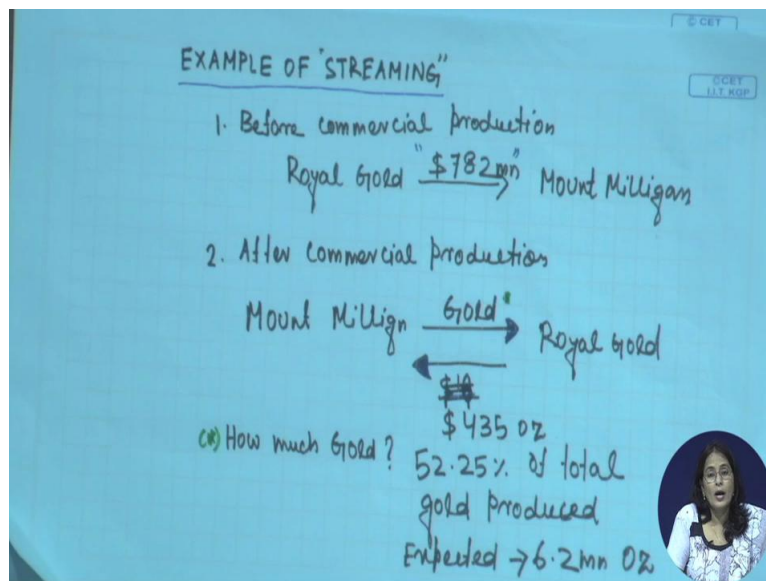 © CET
EXAMPLE OF "STREAMING"
©CET
I.I.T. KGP
1. Before commercial production
Royal Gold "$782mn" Mount Milligan
2. After commercial production
Mount Millign Gold Royal Gold
$435 oz
(*) How much Gold? 52.25% of total
gold produced
Expected → 6.2mn Oz